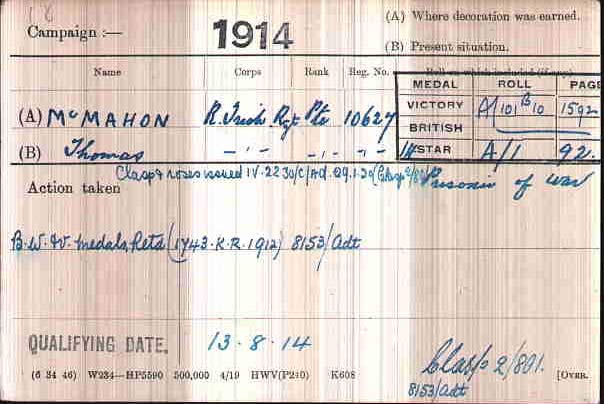 Campaign :— 1914
(A) Where decoration was earned.
(B) Present situation.
Name Corps Rank Reg. No. Roll on which included (if any).
MEDAL ROLL PAGE
(A) McMAHON R. Irish Rgt Pte 10627
VICTORY A/101 B 10 1592
BRITISH
(B) Thomas — " — — " — — " —
STAR A/1 92.
Clasp & roses issued IV. 22 30/C/Ad. 29.1.20 (Clasp 2/891 Prisoner of War
Action taken
B.W. & V. medals Retd (1743. K.R. 1912) 8153/Adt
QUALIFYING DATE. 13.8.14
Clasp 2/891.
(6 34 46) W234—HP5590 500,000 4/19 HWV(P240) K608 [OVER.
8153/adt